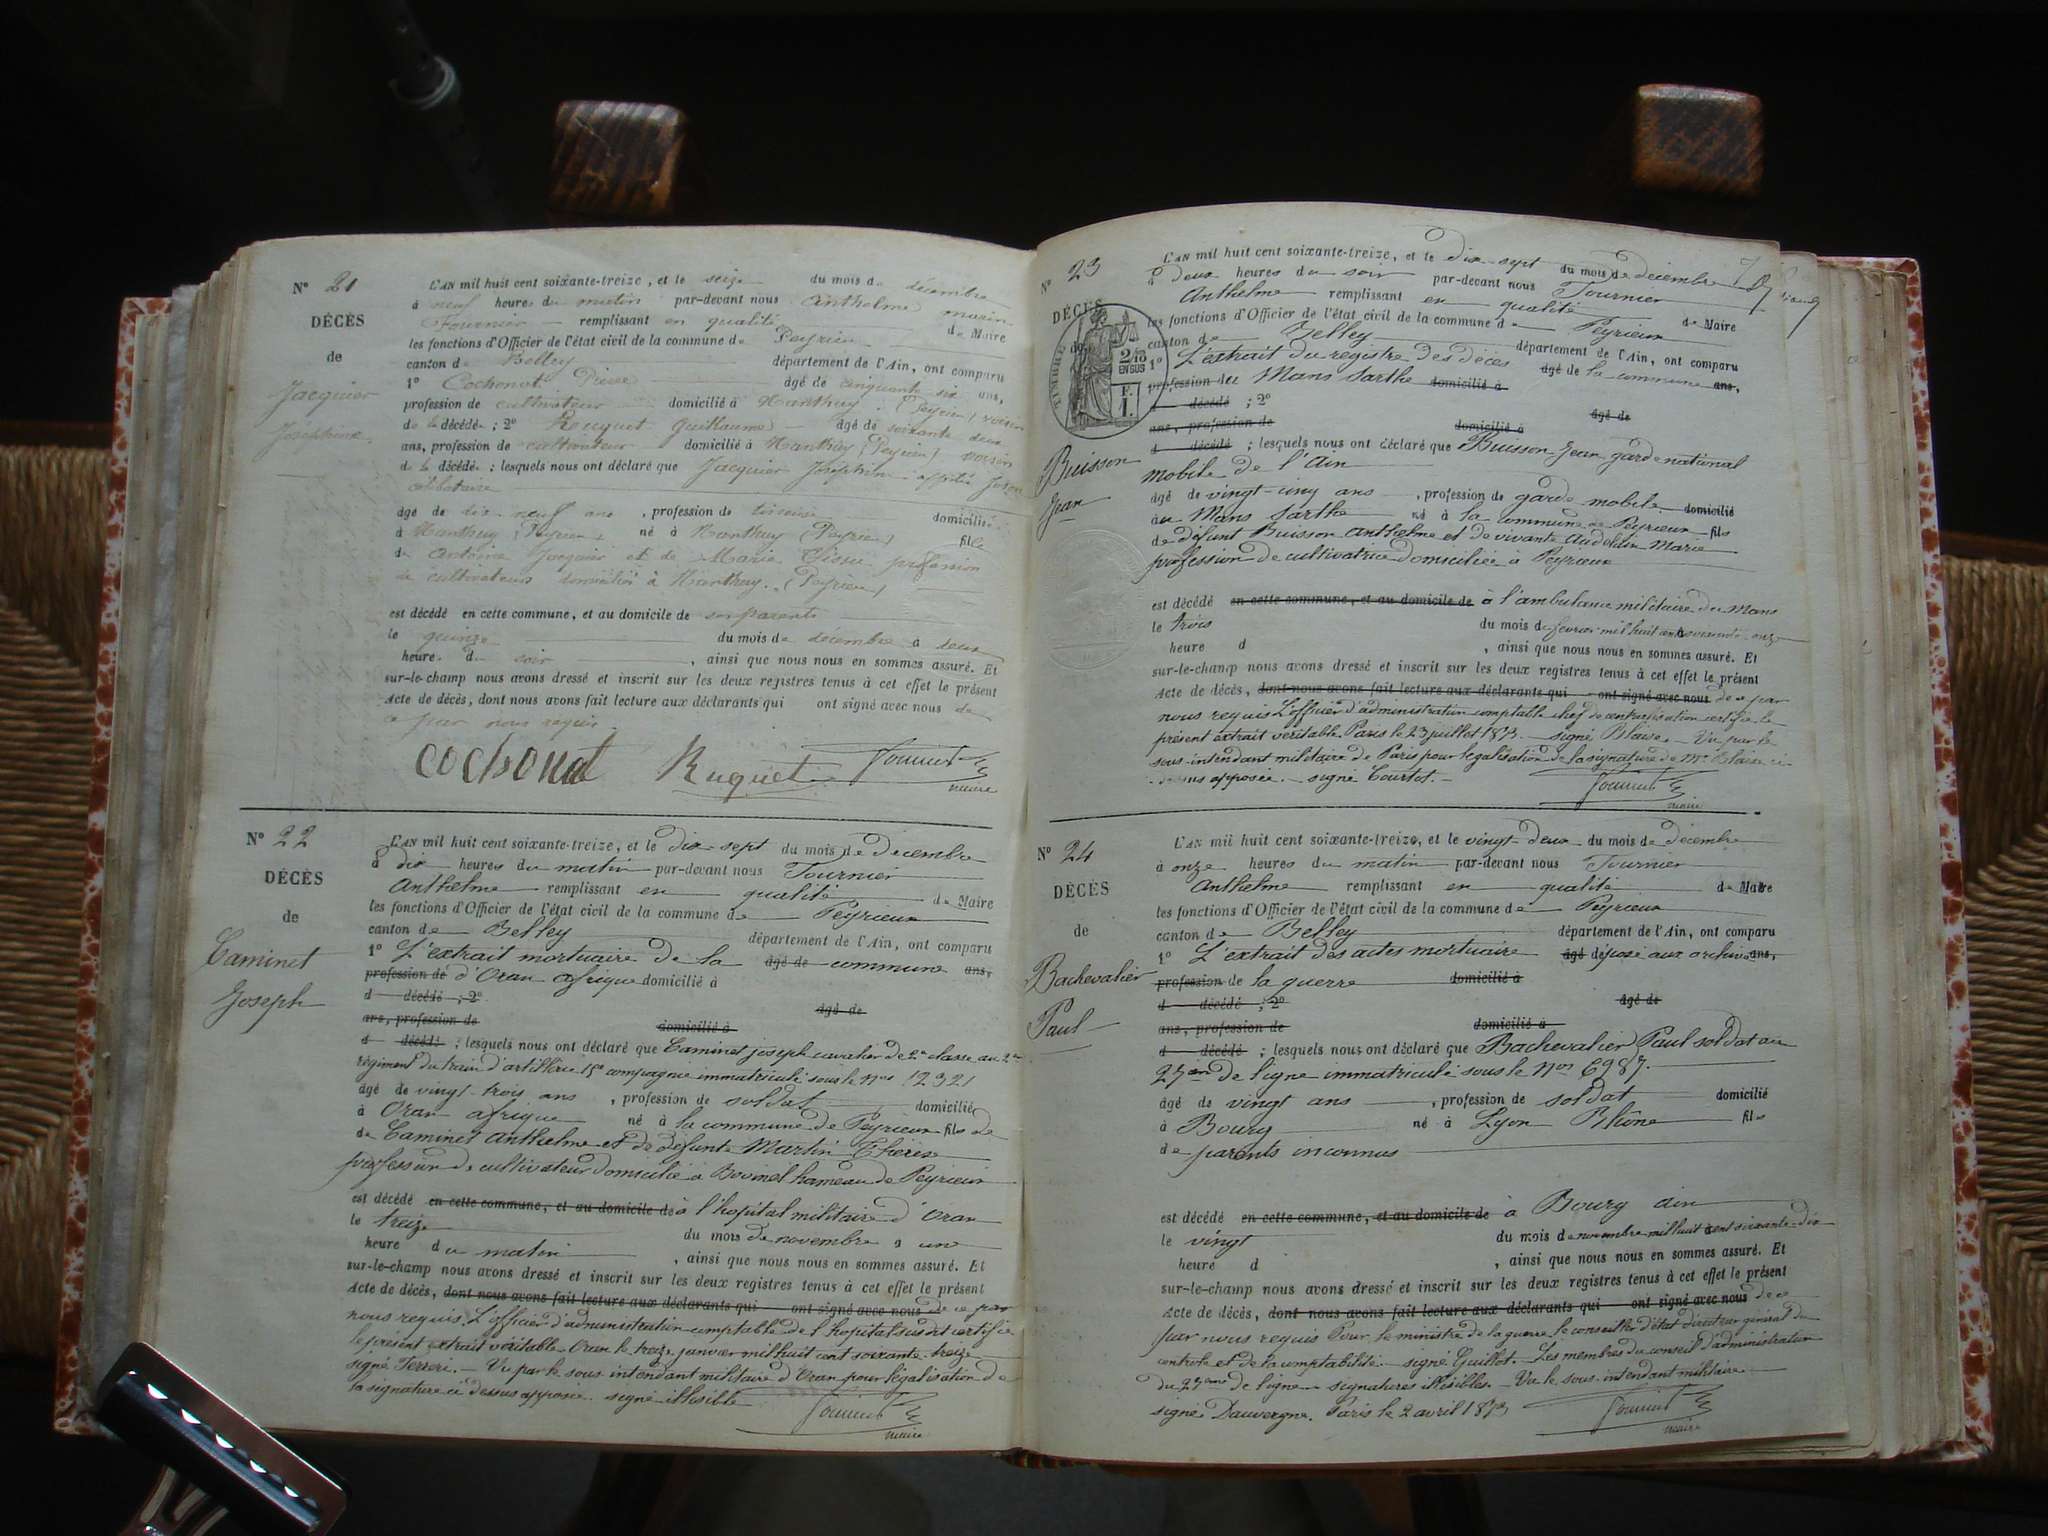 N° 21
DÉCÈS
de
Jacquier
Joséphine
L'AN mil huit cent soixante-treize, et le seize du mois de décembre
à neuf heure du matin par-devant nous Anthelme marin
Fournier remplissant en qualité de Maire
les fonctions d'Officier de l'état civil de la commune de Peyrieu
canton de Belley département de l'Ain, ont comparu
1° Cochonat Pierre âgé de cinquante six ans,
profession de cultivateur domicilié à Nanthuy (Peyrieu) voisin
de la décédée ; 2° Ruquet Guillaume âgé de soixante deux
ans, profession de cultivateur domicilié à Nanthuy (Peyrieu) voisin
de la décédée ; lesquels nous ont déclaré que Jacquier Joséphine
célibataire
âgé de dix neuf ans, profession de domiciliée
à Nanthuy (Peyrieu) né à Nanthuy (Peyrieu) fille
de Antoine Jacquier et de Marie profession
de cultivateurs domiciliés à Nanthuy (Peyrieu)
est décédé en cette commune, et au domicile de ses parents
le quinze du mois de décembre à deux
heure du soir, ainsi que nous nous en sommes assuré. Et
sur-le-champ nous avons dressé et inscrit sur les deux registres tenus à cet effet le présent
Acte de décès, dont nous avons fait lecture aux déclarants qui ont signé avec nous de
ce par nous requis
cochonat Ruquet Fournier
maire
N° 22
DÉCÈS
de
Caminet
Joseph
L'AN mil huit cent soixante-treize, et le dix sept du mois de décembre
à dix heures du matin par-devant nous Fournier
Anthelme remplissant en qualité de Maire
les fonctions d'Officier de l'état civil de la commune de Peyrieux
canton de Belley département de l'Ain, ont comparu
1° L'extrait mortuaire de la âgé de commune ans,
profession de d'Oran afrique domicilié à
d décédé ; 2° âgé de
ans, profession de domicilié à
d décédé ; lesquels nous ont déclaré que Caminet joseph cavalier de 2e classe au 2me
régiment du train d'artillerie 15e compagnie immatriculé sous le Nos 12321
âgé de vingt trois ans, profession de soldat domicilié
à Oran afrique né à la commune de Peyrieux fils de
de Caminet Anthelme et de défunte Martin Thérèse
profession de cultivateur domicilié à Bovinel hameau de Peyrieux
est décédé en cette commune, et au domicile de à l'hopital militaire d'Oran
le treize du mois de novembre à une
heure du matin, ainsi que nous nous en sommes assuré. Et
sur-le-champ nous avons dressé et inscrit sur les deux registres tenus à cet effet le présent
Acte de décès, dont nous avons fait lecture aux déclarants qui ont signé avec nous de ce par
nous requis. L'officier d'administration comptable de l'hopital susdit certifie
le présent extrait véritable Oran le treize janvier mil huit cent soixante treize
signé Ferreri. - Vu par le sous intendant militaire d'Oran pour légalisation de
la signature ci dessus apposée signé illisible
Fournier
maire
N° 23
DÉCÈS
de
TIMBRE
2/10
EN SUS
Buisson
Jean
L'AN mil huit cent soixante-treize, et le dix sept du mois de décembre
à deux heures du soir par-devant nous Fournier
Anthelme remplissant en qualité de Maire
les fonctions d'Officier de l'état civil de la commune de Peyrieux
canton de Belley département de l'Ain, ont comparu
1° L'extrait du registre des décès âgé de la commune ans,
profession de du Mans Sarthe domicilié à
d décédé ; 2° âgé de
ans, profession de domicilié à
d décédé ; lesquels nous ont déclaré que Buisson Jean garde national
mobile de l'Ain
âgé de vingt-cinq ans, profession de garde mobile domicilié
au Mans Sarthe né à la commune de Peyrieux fils
de défunt Buisson Anthelme et de vivante Marie
profession de cultivatrice domiciliée à Peyrieux
est décédé en cette commune, et au domicile de à l'ambulance militaire du Mans
le trois du mois de fevrier mil huit cent soixante onze
heure d, ainsi que nous nous en sommes assuré. Et
sur-le-champ nous avons dressé et inscrit sur les deux registres tenus à cet effet le présent
Acte de décès, dont nous avons fait lecture aux déclarants qui ont signé avec nous de ce par
nous requis L'officier d'administration comptable chef de centralisation certifie le
présent extrait véritable Paris le 23 juillet 1873. signé Blaise. - Vu par le
sous-intendant militaire de Paris pour légalisation de la signature de Mr Blaise ci
dessus apposée. signé Courtot.
Fournier
maire
N° 24
DÉCÈS
de
Bachevalier
Paul
L'AN mil huit cent soixante-treize, et le vingt-deux du mois de décembre
à onze heures du matin par-devant nous Fournier
Anthelme remplissant en qualité de Maire
les fonctions d'Officier de l'état civil de la commune de Peyrieux
canton de Belley département de l'Ain, ont comparu
1° L'extrait des actes mortuaire âgé déposé aux archives ans,
profession de la guerre domicilié à
d décédé ; 2° âgé de
ans, profession de domicilié à
d décédé ; lesquels nous ont déclaré que Bachevalier Paul soldat au
27me de ligne immatriculé sous le Nos 6987.
âgé de vingt ans, profession de soldat domicilié
à Bourg né à Lyon Rhône fils
de parents inconnus
est décédé en cette commune, et au domicile de à Bourg ain
le vingt du mois de novembre mil huit cent soixante-dix
heure d, ainsi que nous nous en sommes assuré. Et
sur-le-champ nous avons dressé et inscrit sur les deux registres tenus à cet effet le présent
Acte de décès, dont nous avons fait lecture aux déclarants qui ont signé avec nous de ce
par nous requis Pour le ministre de la guerre le conseiller d'état directeur général du
controle et de la comptabilité. signé Guillot. Les membres du conseil d'administration
du 27eme de ligne signatures illisibles. - Vu le sous-intendant militaire
signé Dauvergne. Paris le 2 avril 1873
Fournier
maire